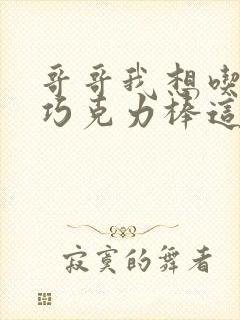 哥哥我想喫
巧克力棒這
寂寞的舞者